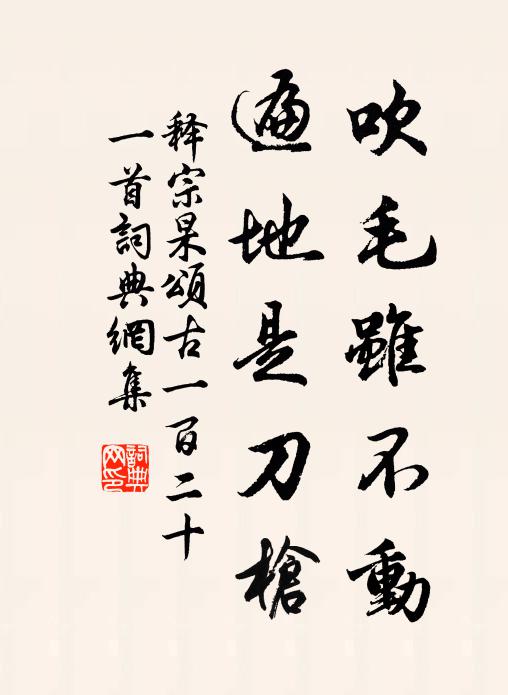 吹毛雖不動
遍地是刀槍
释宗杲頌古一百二十
一首詞典網集
詞典网印